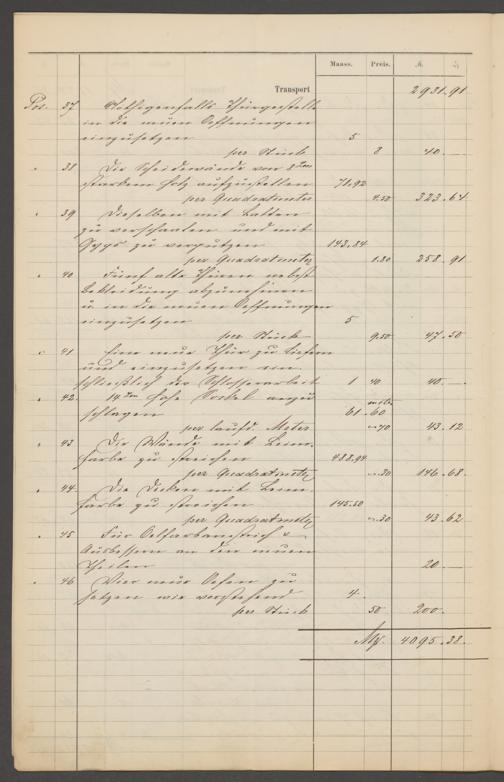 Maass. Preis. M. ₰
Transport 2931.91
Pos. 37 Nothigenfalls Thürgestelle
in die neuen Oeffnungen
einzusetzen 5
per Stück 8 40.—
" 38 Die Scheidewände von 8 Ctm
starkem Holz aufzustellen 71.92
per Quadratmeter 4.50 323.64
" 39 Dieselben mit Latten
zu verschaalen und mit
Gyps zu verputzen 143.84
per Quadratmeter 1.80 258.91
" 40 Fünf alte Thüren nebst
Bekleidung abzunehmen
u. in die neuen Oeffnungen
einzusetzen 5
per Stück 9.50 47.50
" 41 Eine neue Thür zu liefern
und einzusetzen ein-
schließlich der Schlosserarbeit 1 40 40.—
" 42 14 Ctm hohe Sockel anzu-
schlagen 61.60
per laufd. Meter -.70 43.12
" 43 Die Wände mit Leim-
farbe zu streichen 488.94
per Quadratmeter -.30 146.68
" 44 Die Decken mit Leim-
farbe zu streichen 145.50
per Quadratmeter -.30 43.62
" 45 Für Oelfarbanstrich u.
Ausbessern an den neuen
Theilen 20.—
" 46 Vier neue Oefen zu
setzen wie vorstehend 4
per Stück 50 200.—
Mk. 4095.38